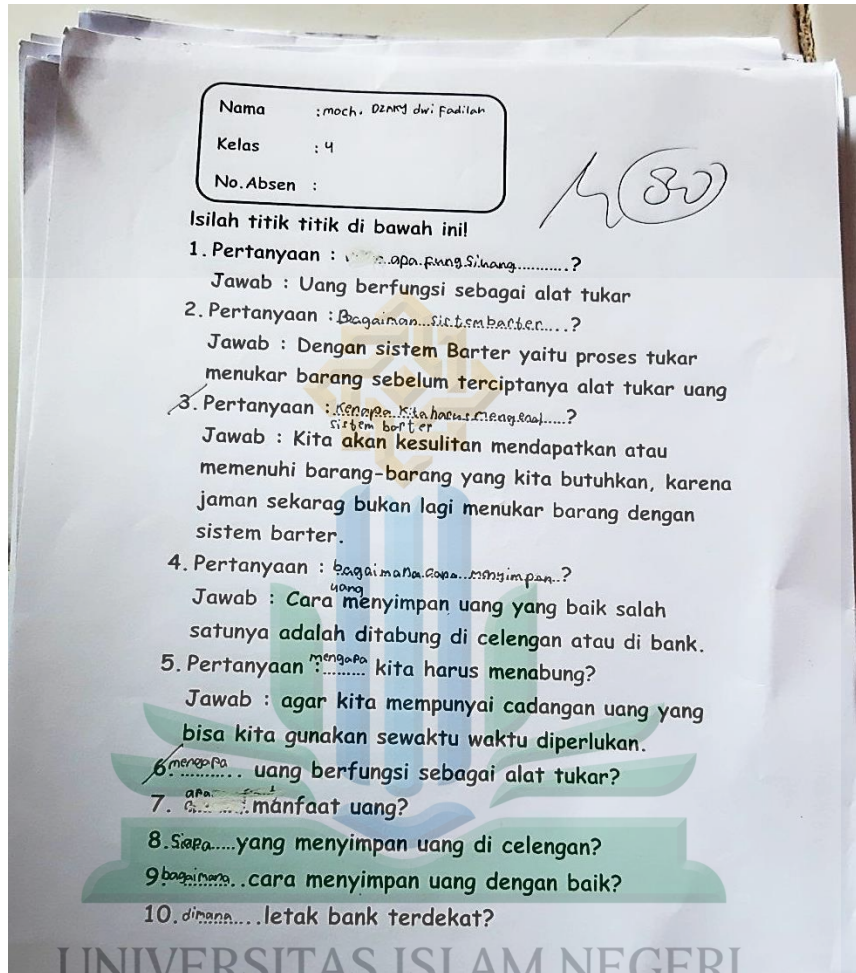 Nama : moch. DZAKY dwi Fadilah
Kelas : 4
No.Absen :
80
Isilah titik titik di bawah ini!
1. Pertanyaan : ...apa.fungsi.uang...........?
Jawab : Uang berfungsi sebagai alat tukar
2. Pertanyaan : Bagaiman...sistem barter.....?
Jawab : Dengan sistem Barter yaitu proses tukar
menukar barang sebelum terciptanya alat tukar uang
3. Pertanyaan : Kenapa kita harus mengenal.....?
sistem barter
Jawab : Kita akan kesulitan mendapatkan atau
memenuhi barang-barang yang kita butuhkan, karena
jaman sekarag bukan lagi menukar barang dengan
sistem barter.
4. Pertanyaan : bagaimana.cara...menyimpan..?
uang
Jawab : Cara menyimpan uang yang baik salah
satunya adalah ditabung di celengan atau di bank.
5. Pertanyaan : mengapa......... kita harus menabung?
Jawab : agar kita mempunyai cadangan uang yang
bisa kita gunakan sewaktu waktu diperlukan.
6. mengapa........... uang berfungsi sebagai alat tukar?
7. apa........manfaat uang?
8. Siapa.....yang menyimpan uang di celengan?
9 bagaimana..cara menyimpan uang dengan baik?
10. dimana....letak bank terdekat?
UNIVERSITAS ISLAM NEGERI